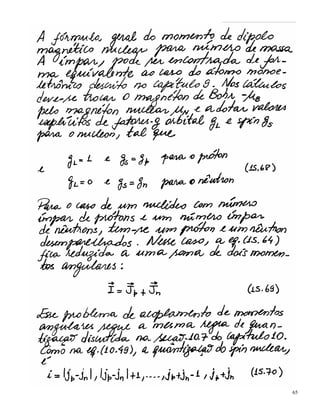 A fórmula geral do momento de dipolo
magnético nuclear para número de massa
A ímpar, pode ser encontrada de for-
ma equivalente ao caso do átomo monoe-
letrônico descrito no capítulo 9. Nos cálculos
deve-se trocar o magnéton de Bohr μB
pelo magnéton nuclear μN e adotar valores
explícitos de fatores-g orbital gL e spin gs
para o nucleon, tal que
gL = 1 e gs = gp para o próton
e (15.68)
gL = 0 e gs = gn para o nêutron
Para o caso de um nuclídeo com número
ímpar de prótons e um número ímpar
de nêutrons, tem-se um próton e um nêutron
desemparelhados. Nesse caso, a eq. (15.64)
fica reduzida a uma soma de dois momen-
tos angulares:
I⃗ = J⃗p + J⃗n (15.69)
Esse problema de acoplamento de momentos
angulares segue a mesma regra de quan-
tização discutida na secção 10.7 do capítulo 10.
Como na eq. (10.49), a quantização do spin nuclear,
é
i = |jp-jn|, |jp-jn|+1, ...., jp+jn-1, jp+jn (15.70)
65